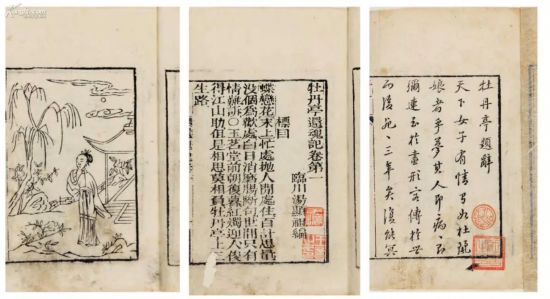 牡丹亭題辭
天下女子有情寧有如杜麗
娘者乎夢其人即病病即
彌連至於畫形容傳於世
而後死死三年矣復能冥
牡丹亭還魂記卷第一
臨川湯顯祖編
標目
蝶戀花末上忙處拋人閒處住百計思量
沒個爲歡處白日消磨腸斷句世間只有
情難訴〇玉茗堂前朝復暮紅燭迎人俊
得江山助但是相思莫相負牡丹亭上三
生路